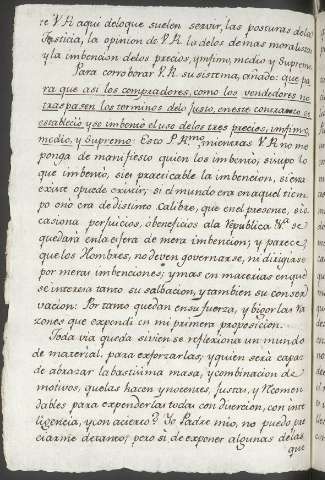 te V.R. aqui deloque suelen servir, las posturas dela
Justicia, la opinion de V.R. la delos demas moralistas
y la imbencion delos precios, ynfimo, medio y Supremo.
Para corroborar V.R. su sistema, añade: que pa
ra que asi los compradores, como los vendedores no
traspasen los terminos delo Justo, eneste contrato se
establecio y se imbentó el uso delos tres precios, ynfimo,
medio, y Supremo: Esto P.e R.mo mientras V.R. no me
ponga de manifiesto quien los imbentó; si supo lo
que imbentó, si es practicable la imbencion, si exa
existe opuede existir; si el mundo era en aquel tiem
po onó era de distinto Calibre, que enel presente, si o
casiona perjuicios, óbeneficios ala Republica &.a se
quedará enla esfera de mera imbencion; y parece
que los Hombres, no deven governarse, ni dirigirse
por meras imbenciones; y mas en materias en que
se interesa tanto su salbacion, y tambien su conser
vacion: Por tanto quedan ensu fuerza, y bigor las ra
zones que expendi en mi primera proposicion.
Toda via queda si vien se reflexiona un mundo
de material para exforzarlas; y quien será capaz
de abrazar la bastisima masa, y combinacion de
motivos, quelas hacen ynocentes, justas, y recomen
dables para expenderlas todas con divercion, con inte
ligencia, y con acierto? Yo Padre mio, no puedo pre
ciarme detanto; pero si de exponer algunas delas
que